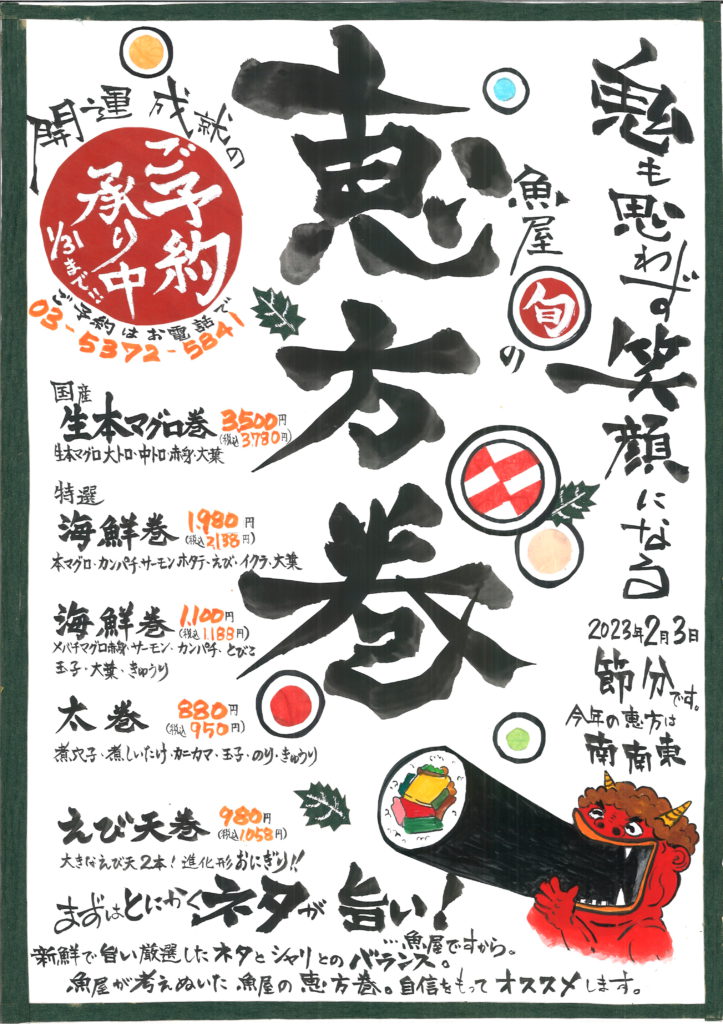 鬼も思わず笑顔になる
魚屋
旬
の
恵方巻
開運成就の
ご予約
承り中
1/31まで!!
ご予約はお電話で
03-5372-5841
国産
生本マグロ巻 3,500円
(税込3780円)
生本マグロ大トロ・中トロ・赤身・大葉
特選
海鮮巻 1,980円
(税込2,138円)
本マグロ・カンパチ・サーモン・ホタテ・えび・イクラ・大葉
海鮮巻 1,100円
(税込1,188円)
メバチマグロ赤身・サーモン・カンパチ・とびこ
玉子・大葉・きゅうり
太巻 880円
(税込950円)
煮穴子・煮しいたけ・カニカマ・玉子・のり・きゅうり
えび天巻 980円
(税込1058円)
大きなえび天2本!進化形おにぎり!!
2023年2月3日
節分です。
今年の恵方は
南南東
まずはとにかくネタが旨い!
…魚屋ですから。
新鮮で旨い厳選したネタとシャリとのバランス。
魚屋が考えぬいた魚屋の恵方巻。自信をもってオススメします。